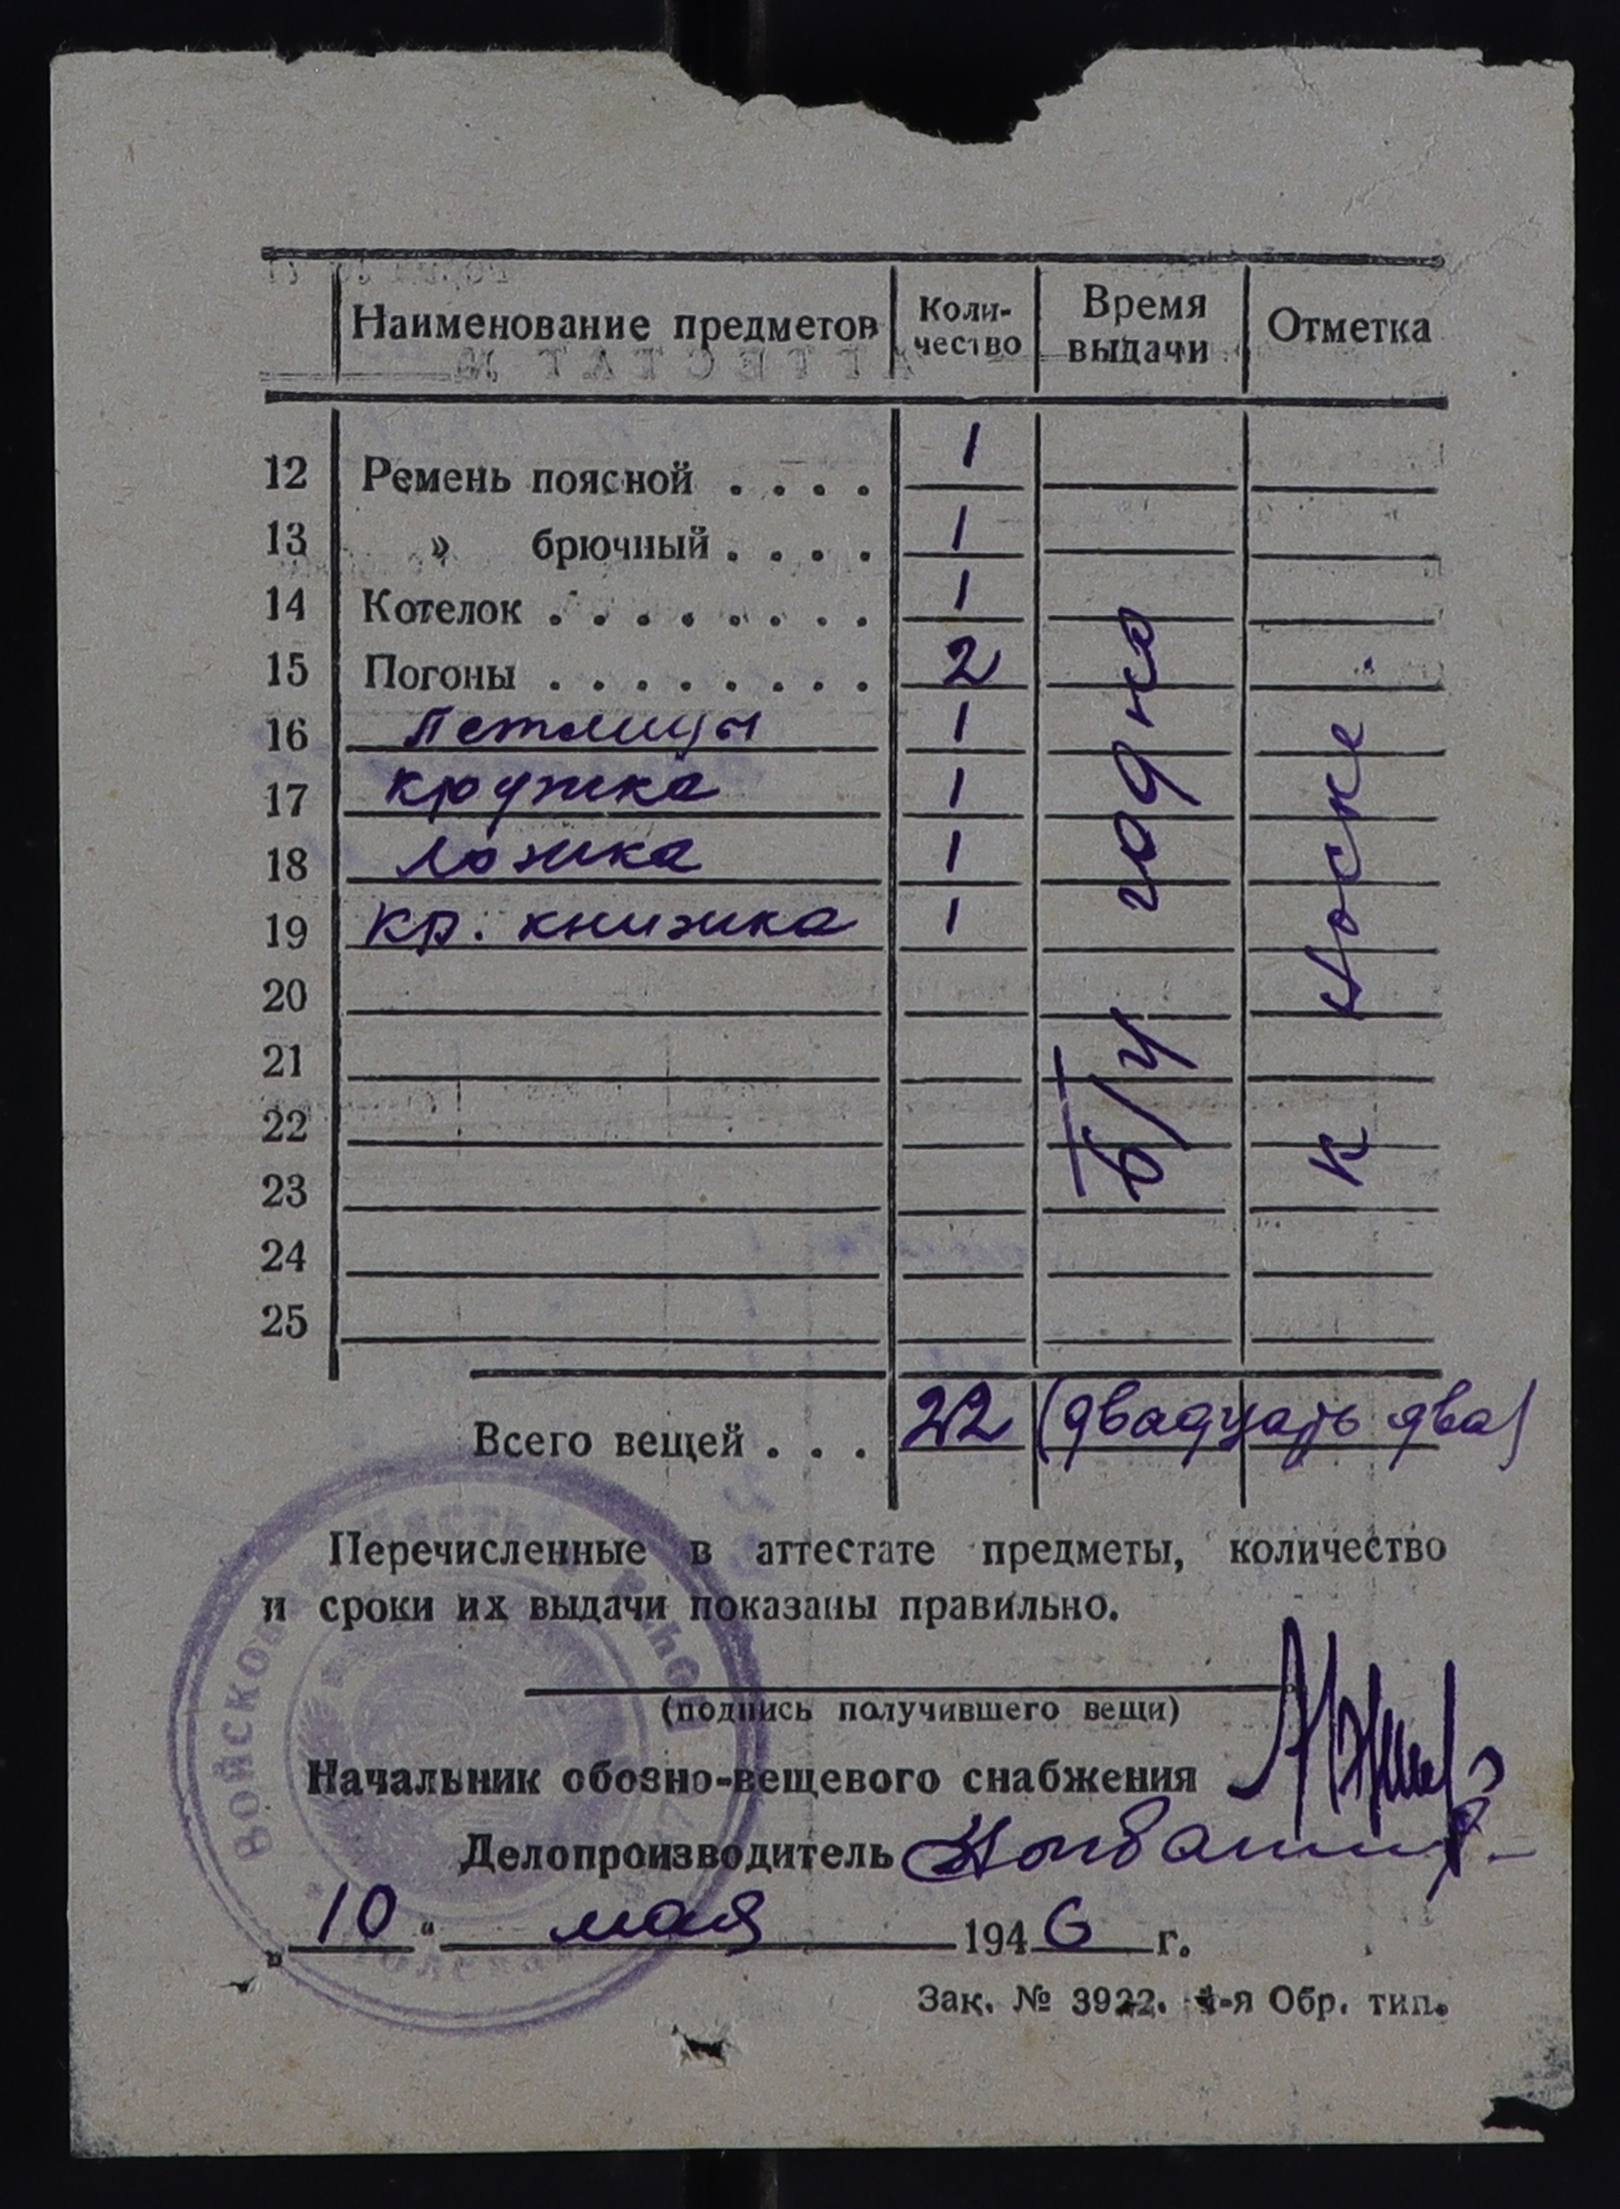 Наименование предметов Коли-чество Время выдачи Отметка
12 Ремень поясной . . . . 1
13 » брючный . . . . 1
14 Котелок . . . . . . . . 1
15 Погоны . . . . . . . . 2
16 Петлицы 1
17 кружка 1
18 ложка 1
19 кр. книжка 1
20
21
22
23
24
25
б/у годно
к носке
Всего вещей . . . 22 (двадцать два)
Перечисленные в аттестате предметы, количество
и сроки их выдачи показаны правильно.
(подпись получившего вещи)
Начальник обозно-вещевого снабжения
Делопроизводитель
„ 10 “ мая 1946 г.
Зак. № 3922. 1-я Обр. тип.